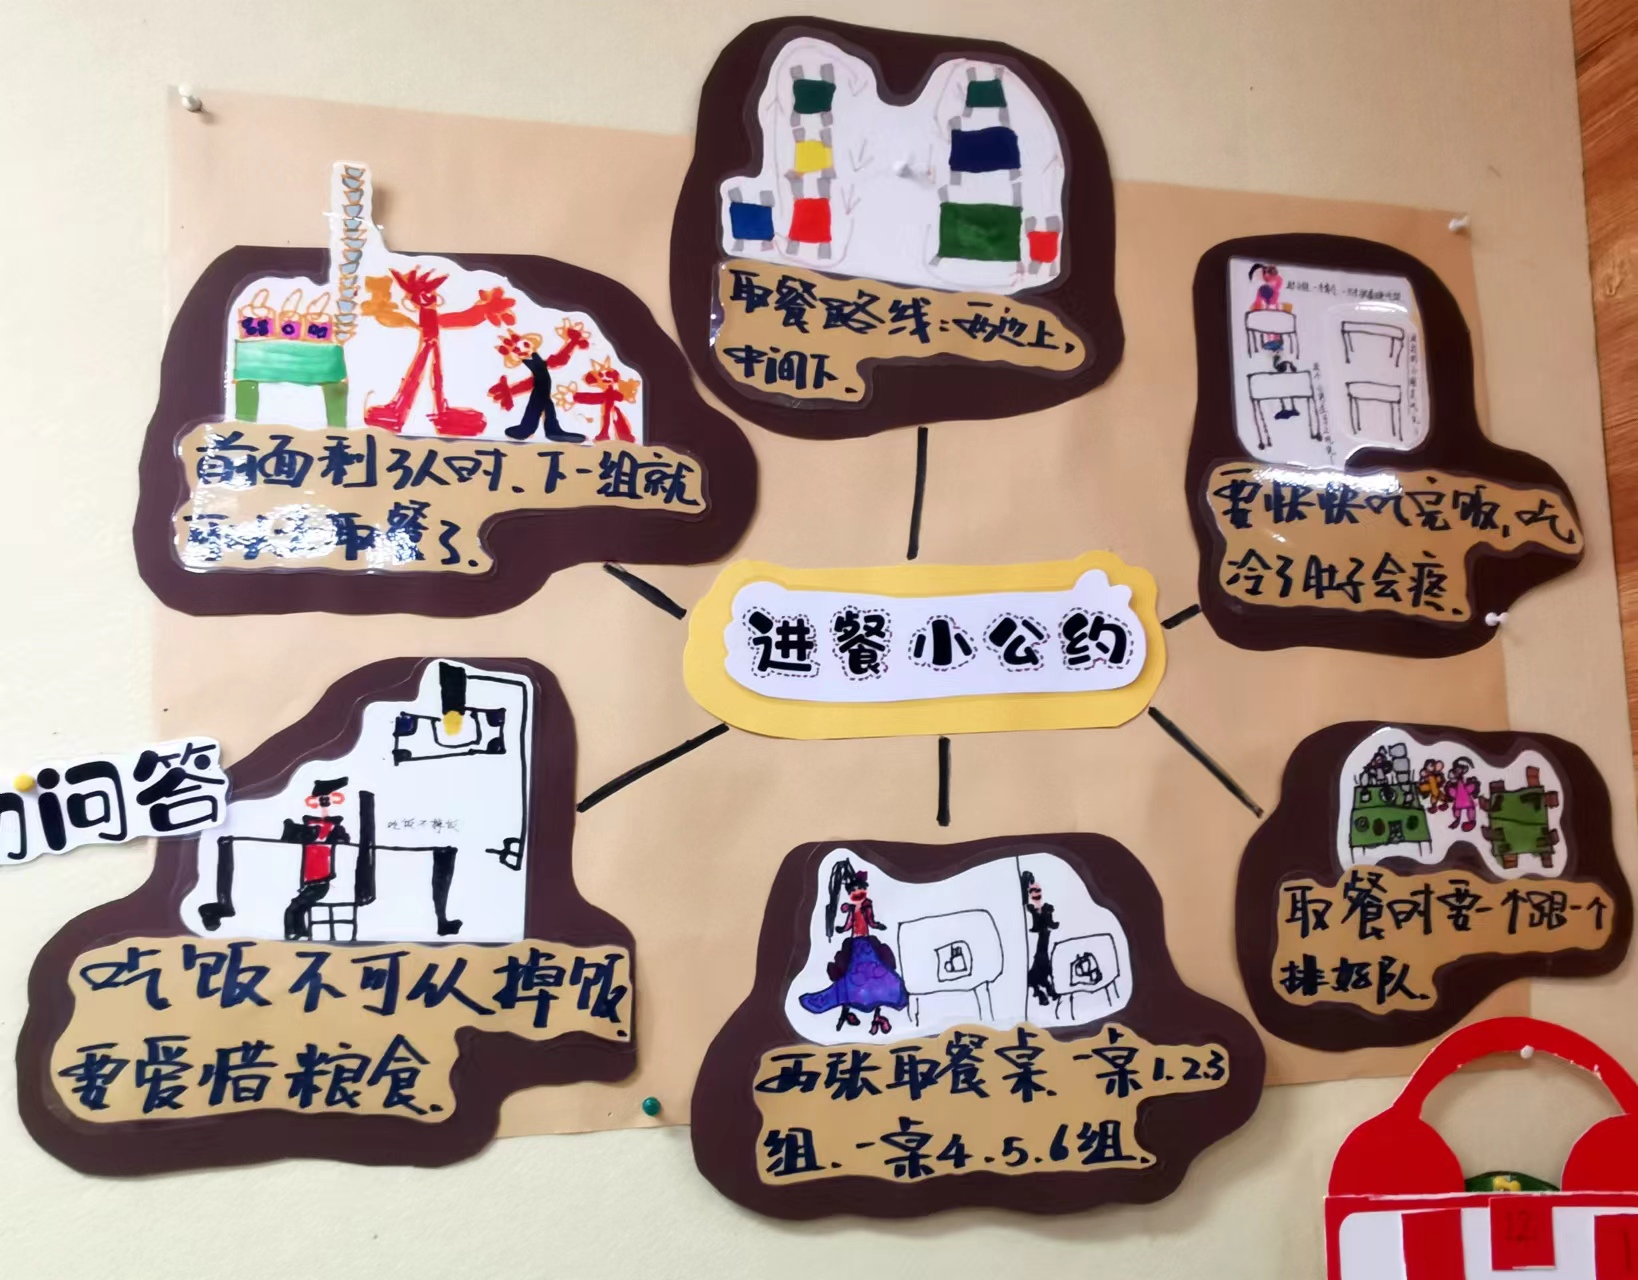 取餐路线:两边上,
中间下.
前面剩3人时.下一组就
取餐了.
要快快吃完饭,吃
冷了肚子会疼.
进餐小公约
问答
吃饭不掉饭
吃饭不可以掉饭.
要爱惜粮食.
两张取餐桌.一桌1.2.3
组.一桌4.5.6组.
取餐时要一个跟一个
排好队.
12